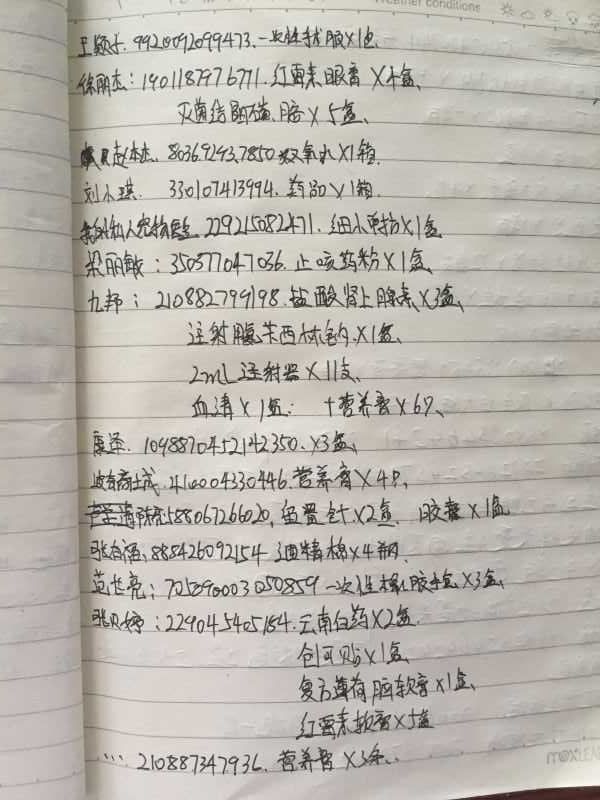 Weather conditions
王颖大. 9920092099473. 一次性手术服×1包
徐丽杰：1901187976771. 红霉素眼膏×4盒、
灭菌结晶磺胺×5盒、
赵杰杰. 803692937850 双氧水×1箱
刘小琪. 330107413994. 药品×1箱
私人宠物医生. 229215082471. 细小单抗×1盒
梁丽敏：350577047036. 止咳药粉×1盒、
九邦：210882799198. 盐酸肾上腺素×3盒、
注射用氨苄西林钠×1盒、
2mL注射器×11支、
血清×1盒； 营养膏×6只、
康泽. 1098870452142350. ×3盒、
416004330446. 营养膏×4只、
588067266020, 留置针×2盒. 胶囊×1盒
888426092154 酒精棉×4瓶
范世亮：702590003050859 一次性橡胶手套×3盒、
张贝婷：229045405184. 云南白药×2盒.
创可贴×1盒、
复方薄荷脑软膏×1盒、
红霉素软膏×5盒
… 210887347936. 营养膏×3条、